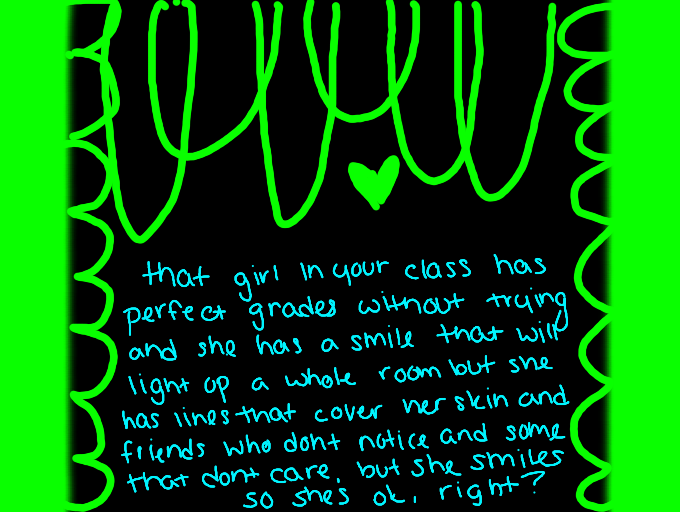 that girl in your class has
perfect grades without trying
and she has a smile that will
light up a whole room but she
has lines that cover her skin and
friends who dont notice and some
that dont care. but she smiles
so shes ok, right?